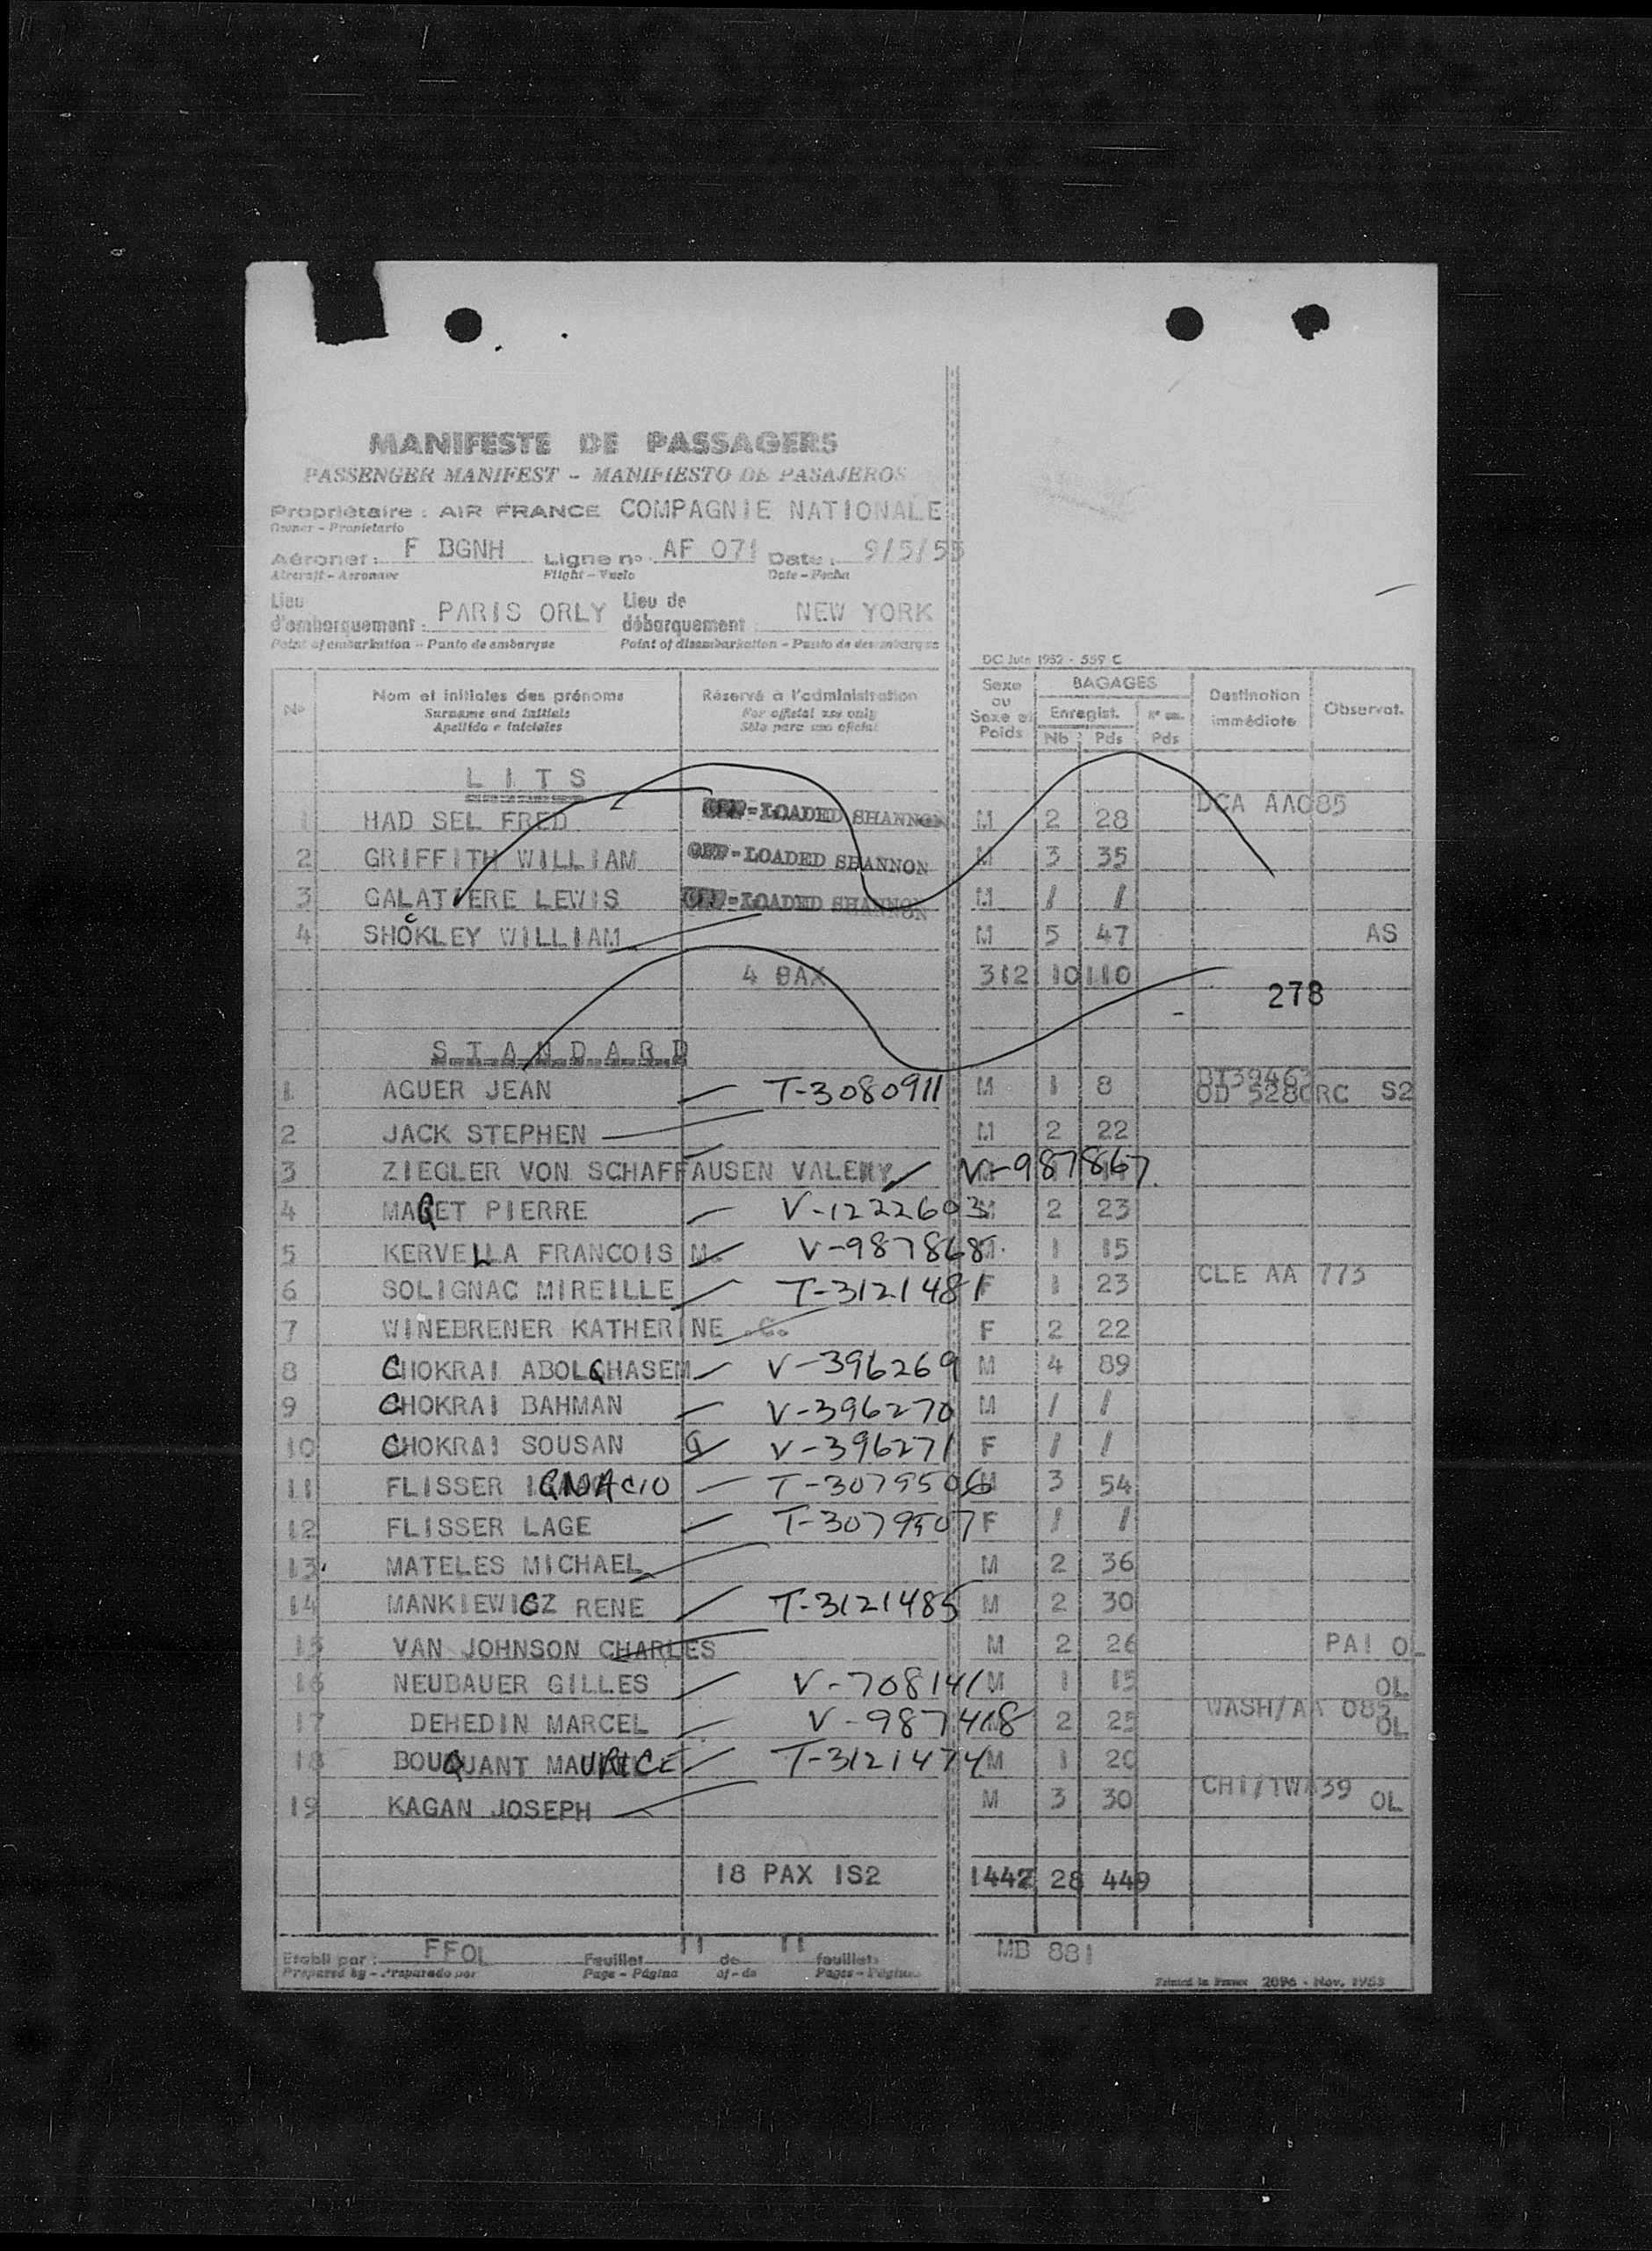 MANIFESTE DE PASSAGERS
PASSENGER MANIFEST - MANIFIESTO DE PASAJEROS
Propriétaire : AIR FRANCE COMPAGNIE NATIONALE
Owner - Propietario
Aéronef : F BGNH Ligne n° AF 071 Date : 9/5/55
Aircraft - Aeronave Flight - Vuelo Date - Fecha
Lieu d'embarquement : PARIS ORLY Lieu de débarquement : NEW YORK
Point of embarkation - Punto de embarque Point of disembarkation - Punto de desembarque
DC Juin 1952 - 559 C
N° Nom et initiales des prénoms Réservé à l'administration Sexe ou Sexe et Poids BAGAGES Destination immédiate Observat.
Surname and initials For official use only Enregist.
Apellido e iniciales Sólo para uso oficial Nb Pds Pds
LITS
1 HAD SEL FRED OFF-LOADED SHANNON M 2 28 DCA AA085
2 GRIFFITH WILLIAM OFF-LOADED SHANNON M 3 35
3 GALATIERE LEWIS OFF-LOADED SHANNON M / /
4 SHOCKLEY WILLIAM M 5 47 AS
4 PAX 312 10 110
278
STANDARD
1 AGUER JEAN T-3080911 M 1 8 OD 528 ORC S2
2 JACK STEPHEN M 2 22
3 ZIEGLER VON SCHAFFAUSEN VALERY V-987867
4 MAGET PIERRE V-1222603 M 2 23
5 KERVELLA FRANCOIS M. V-987868 M 1 15
6 SOLIGNAC MIREILLE T-3121481 F 1 23 CLE AA 773
7 WINEBRENER KATHERINE .C. F 2 22
8 CHOKRAI ABOLGHASEM V-396269 M 4 89
9 CHOKRAI BAHMAN V-396270 M / /
10 CHOKRAI SOUSAN G V-396271 F / /
11 FLISSER IGNACIO T-3079506 M 3 54
12 FLISSER LAGE T-3079507 F / /
13 MATELES MICHAEL M 2 36
14 MANKIEWICZ RENE T-3121485 M 2 30
15 VAN JOHNSON CHARLES M 2 26 PAI OL
16 NEUBAUER GILLES V-708141 M 1 15 OL
17 DEHEDIN MARCEL V-987418 M 2 25 WASH/AA 085 OL
18 BOUQUANT MAURICE T-3121474 M 1 20
19 KAGAN JOSEPH M 3 30 CHI/TWA39 OL
18 PAX 1S2 1442 28 449
Etabli par : FFOL Feuillet 11 de 11 feuillets MB 881
Prepared by - Preparado por Page - Página of - de Pages - Páginas Printed in France 2096 - Nov. 1953